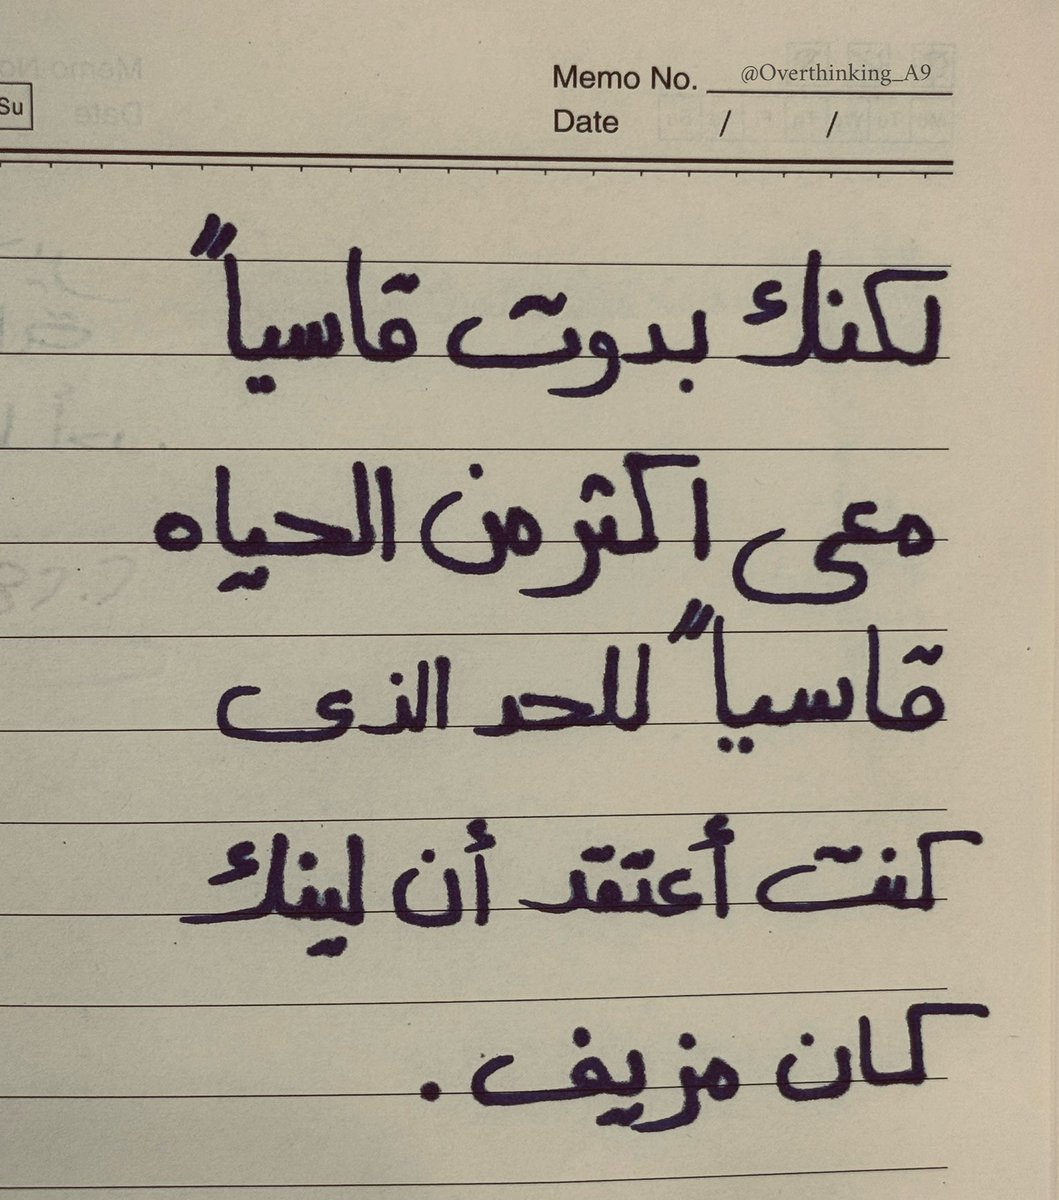 Memo No. @Overthinking_A9
Su
Date / /
لكنك بدوت قاسياً
معى اكثر من الحياه
قاسياً للحد الذى
كنت أعتقد أن لينك
كان مزيف .